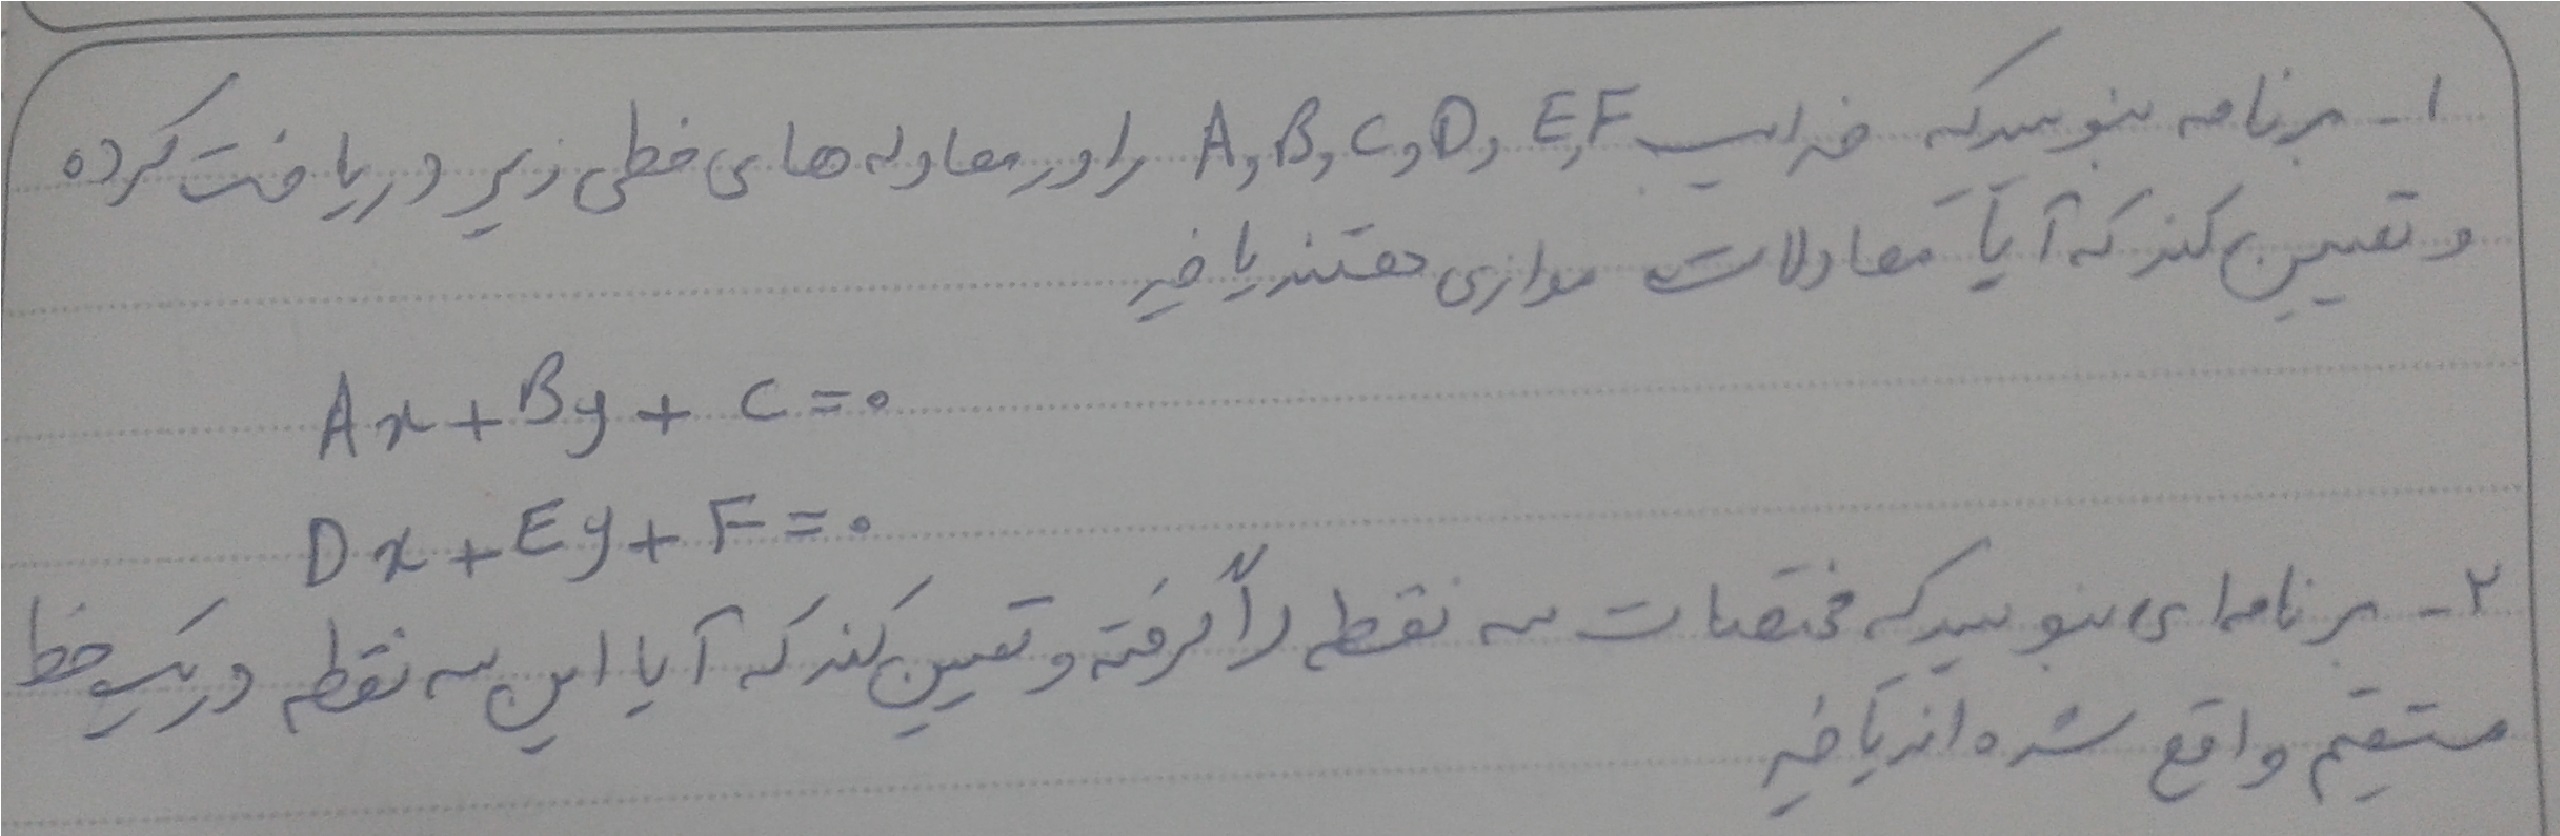 ۱- برنامه بنویسید که ضرایب A, B, C, D, E, F را در معادله های خطی زیر دریافت کرده
و تعیین کند که آیا معادلات موازی هستند یا خیر
Ax + By + C = 0
Dx + Ey + F = 0
۲- برنامه ای بنویسید که مختصات سه نقطه را گرفته و تعیین کند که آیا این سه نقطه در یک خط
مستقیم واقع شده اند یا خیر